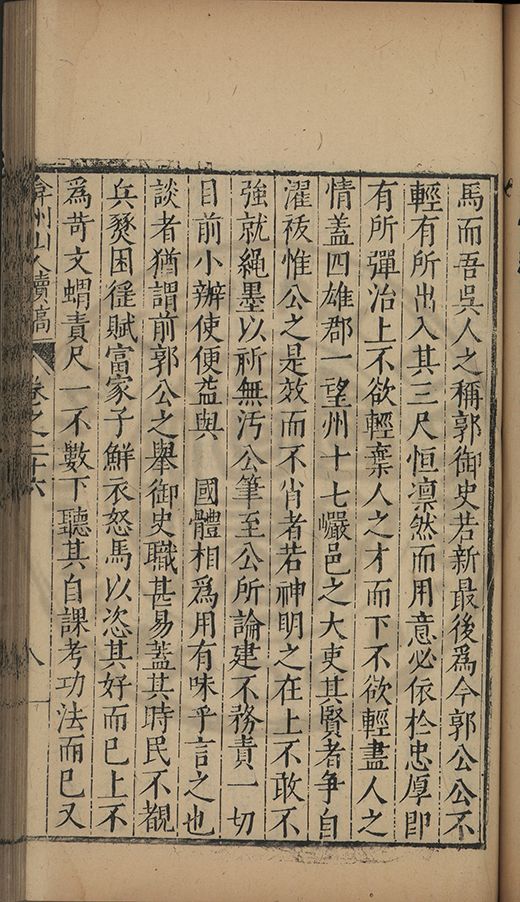 馬而吾吳人之稱郭御史若新最後爲今郭公公不
輕有所出入其三尺恒凛然而用意必依於忠厚即
有所彈治上不欲輕棄人之才而下不欲輕盡人之
情蓋四雄郡一望州十七巖邑之大吏其賢者争自
濯袚惟公之是效而不肖者若神明之在上不敢不
強就繩墨以祈無汚公筆至公所論建不務責一切
目前小辦使便益與　國體相爲用有味乎言之也
談者猶謂前郭公之舉御史職甚易蓋其時民不覩
兵燹困徭賦富家子鮮衣怒馬以恣其好而已上不
爲苛文蝟責尺一不數下聽其自課考功法而已又
弇州山人續稿　卷之二十六　八